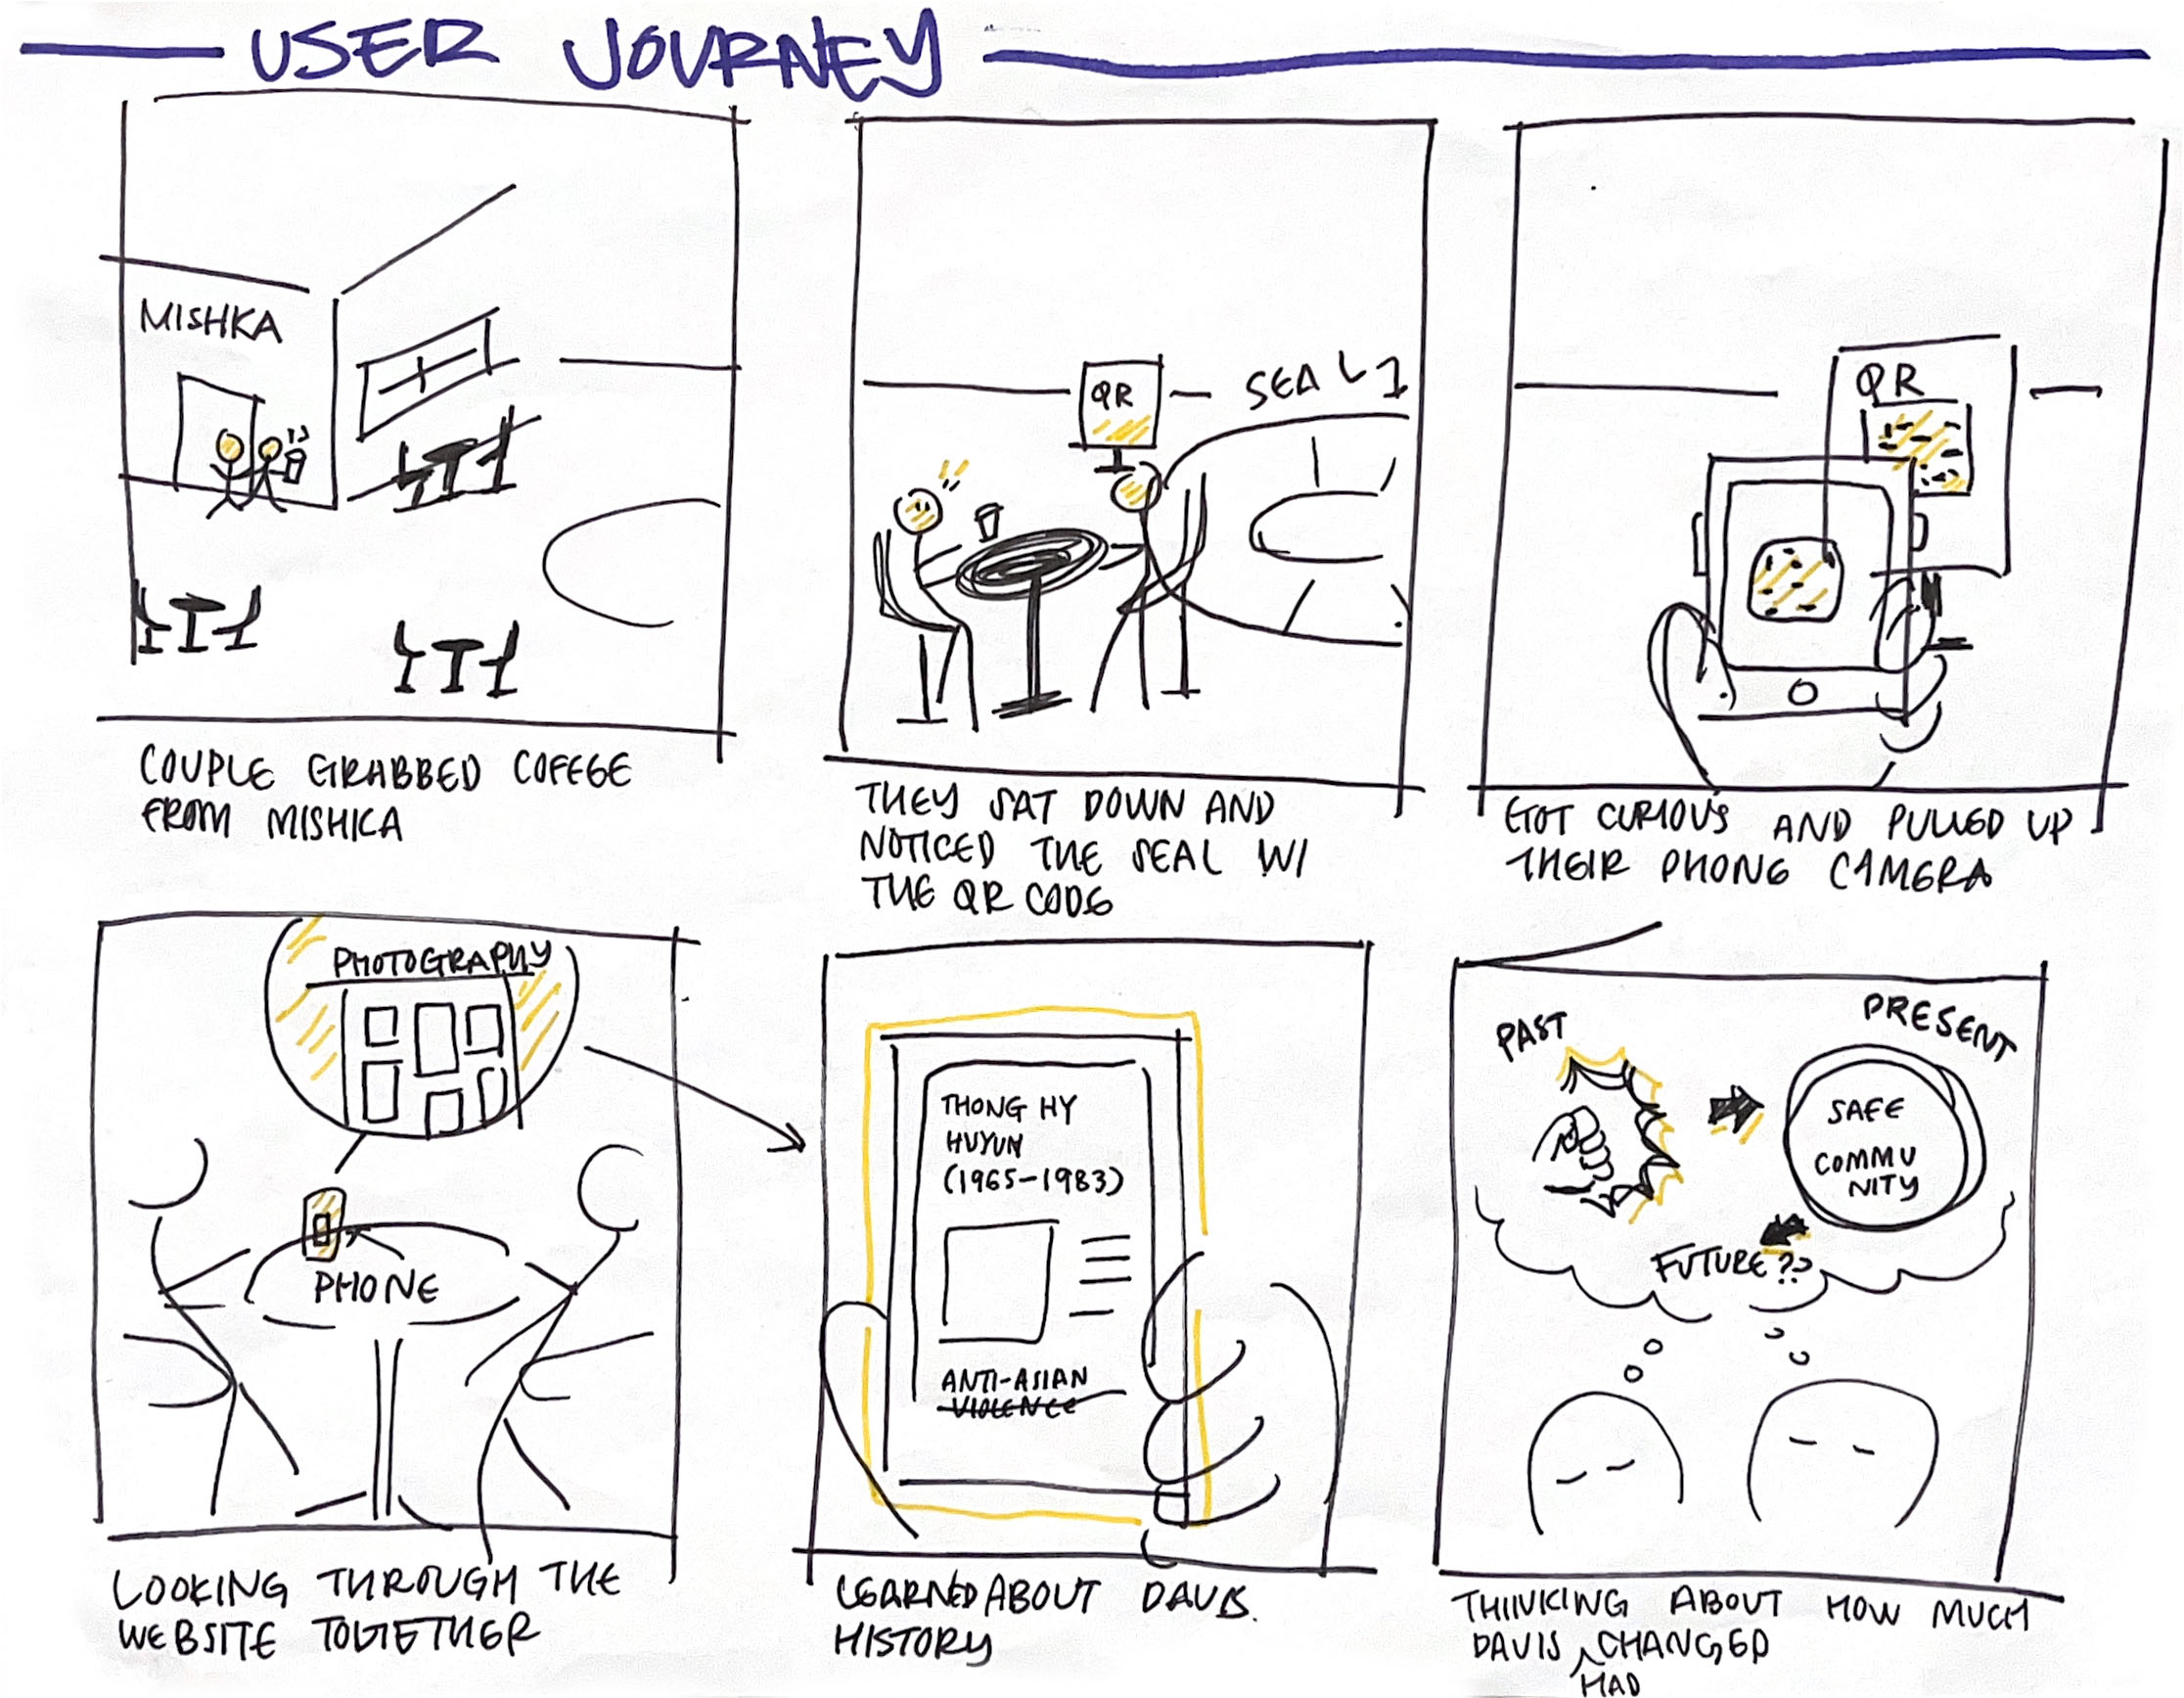 USER JOURNEY
MISHKA
COUPLE GRABBED COFFEE
FROM MISHKA
QR
SEAL 1
THEY SAT DOWN AND
NOTICED THE SEAL W/
THE QR CODE
QR
GOT CURIOUS AND PULLED UP
THEIR PHONE CAMERA
PHOTOGRAPHY
PHONE
LOOKING THROUGH THE
WEBSITE TOGETHER
THONG HY
HUYUN
(1965-1983)
ANTI-ASIAN
VIOLENCE
LEARNED ABOUT DAVIS.
HISTORY
PAST
PRESENT
SAFE
COMMU
NITY
FUTURE??
THINKING ABOUT HOW MUCH
DAVIS CHANGED
HAD